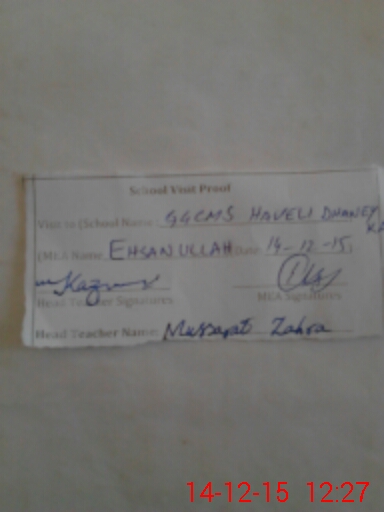 School Visit Proof
Visit to (School Name: GGCMS HAVELI DHANEY
(MEA Name: EHSANULLAH Date: 14-12-15
Head Teacher Signatures MEA Signatures
Head Teacher Name: Mussarat Zahra
14-12-15 12:27